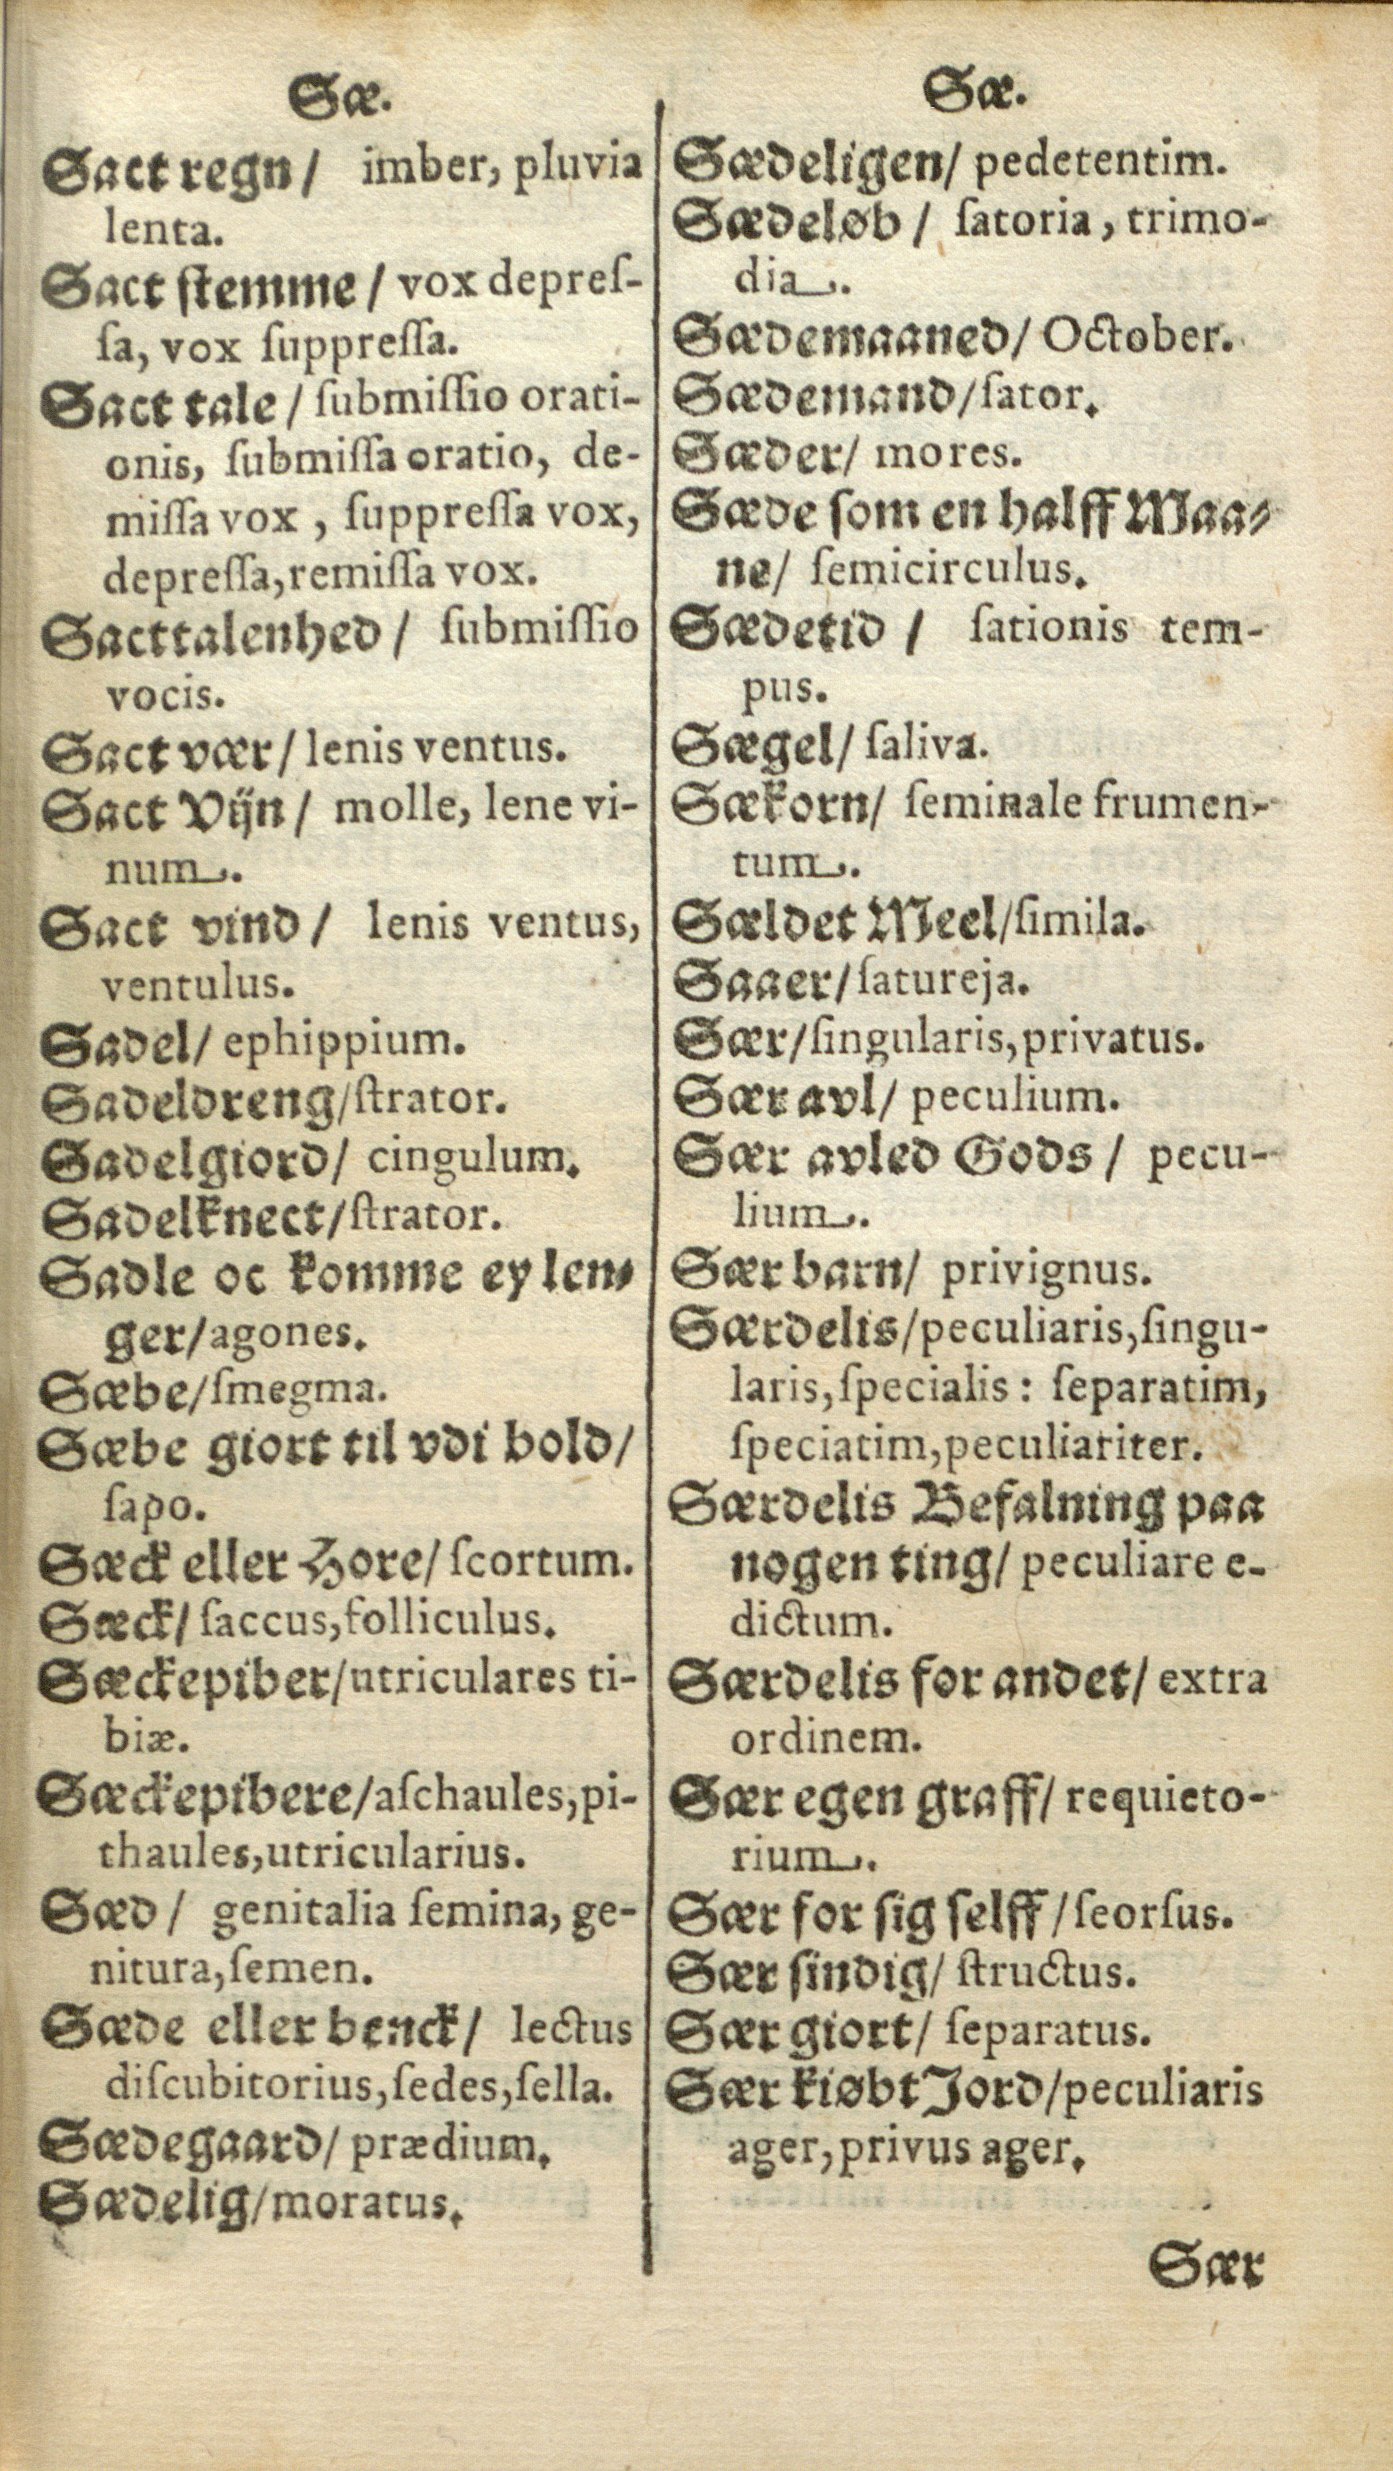 Sæ.
Sact regn/ imber, pluvia
lenta.
Sact stemme/ vox depreſ-
ſa, vox ſuppreſſa.
Sact tale/ ſubmiſſio orati-
onis, ſubmiſſa oratio, de-
miſſa vox, ſuppreſſa vox,
depreſſa, remiſſa vox.
Sacttalenhed/ ſubmiſſio
vocis.
Sact vær/ lenis ventus.
Sact Vijn/ molle, lene vi-
num.
Sact vind/ lenis ventus,
ventulus.
Sadel/ ephippium.
Sadeldreng/ ſtrator.
Sadelgiord/ cingulum.
Sadelknect/ ſtrator.
Sadle oc komme ey len-
ger/ agones.
Sæbe/ ſmegma.
Sæbe giort til vdi bold/
ſapo.
Sæck eller Hore/ ſcortum.
Sæck/ ſaccus, folliculus.
Sæckepiber/ utriculares ti-
biæ.
Sæckepibere/ aſchaules, pi-
thaules, utricularius.
Sæd/ genitalia ſemina, ge-
nitura, ſemen.
Sæde eller benck/ lectus
diſcubitorius, ſedes, ſella.
Sædegaard/ prædium.
Sædelig/ moratus.
Sæ.
Sædeligen/ pedetentim.
Sædeløb/ ſatoria, trimo-
dia.
Sædemaaned/ October.
Sædemand/ ſator.
Sæder/ mores.
Sæde ſom en halff Maa-
ne/ ſemicirculus.
Sædetid/ ſationis tem-
pus.
Sægel/ ſaliva.
Sækorn/ ſeminale frumen-
tum.
Sældet Meel/ ſimila.
Saaer/ ſatureja.
Sær/ ſingularis, privatus.
Sær avl/ peculium.
Sær avled Gods/ pecu-
lium.
Sær barn/ privignus.
Særdelis/ peculiaris, ſingu-
laris, ſpecialis: ſeparatim,
ſpeciatim, peculiariter.
Særdelis Befalning paa
nogen ting/ peculiare e-
dictum.
Særdelis for andet/ extra
ordinem.
Sær egen graff/ requieto-
rium.
Sær for ſig ſelff/ ſeorſus.
Sær ſindig/ ſtructus.
Sær giort/ ſeparatus.
Sær kiøbt Jord/ peculiaris
ager, privus ager.
Sær